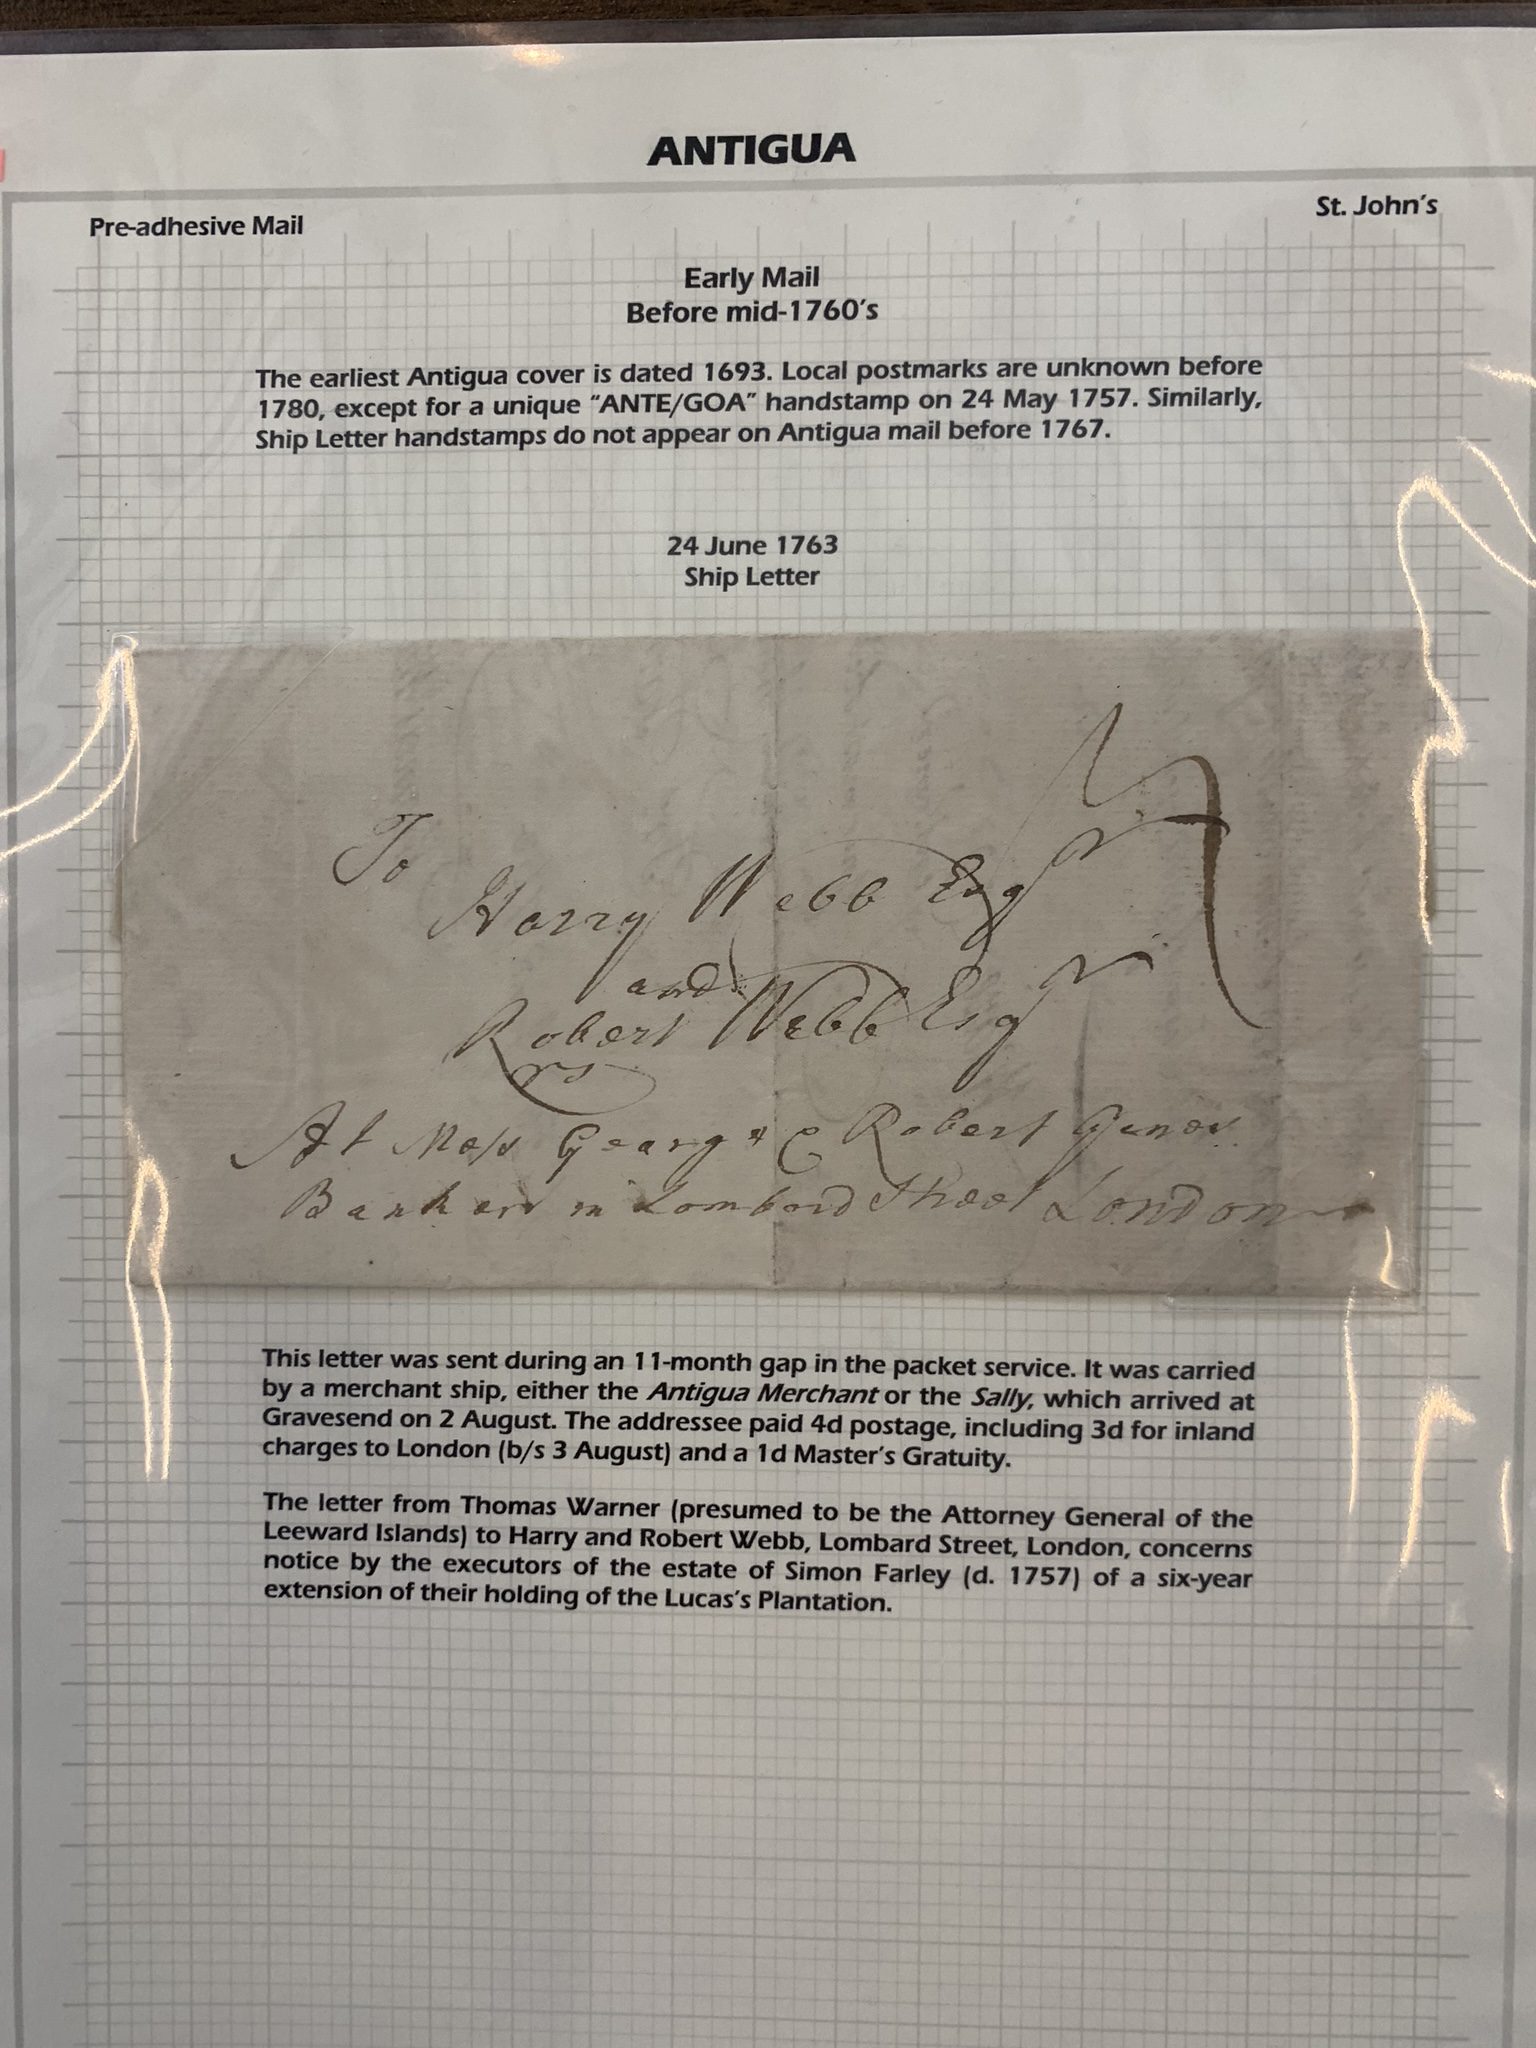 ANTIGUA
Pre-adhesive Mail
St. John's
Early Mail
Before mid-1760's
The earliest Antigua cover is dated 1693. Local postmarks are unknown before
1780, except for a unique "ANTE/GOA" handstamp on 24 May 1757. Similarly,
Ship Letter handstamps do not appear on Antigua mail before 1767.
24 June 1763
Ship Letter
To
Harry Webb Esqr
and
Robert Webb Esqr
At Mess George & Robert
Bankers in Lombard Street London
This letter was sent during an 11-month gap in the packet service. It was carried
by a merchant ship, either the Antigua Merchant or the Sally, which arrived at
Gravesend on 2 August. The addressee paid 4d postage, including 3d for inland
charges to London (b/s 3 August) and a 1d Master's Gratuity.
The letter from Thomas Warner (presumed to be the Attorney General of the
Leeward Islands) to Harry and Robert Webb, Lombard Street, London, concerns
notice by the executors of the estate of Simon Farley (d. 1757) of a six-year
extension of their holding of the Lucas's Plantation.